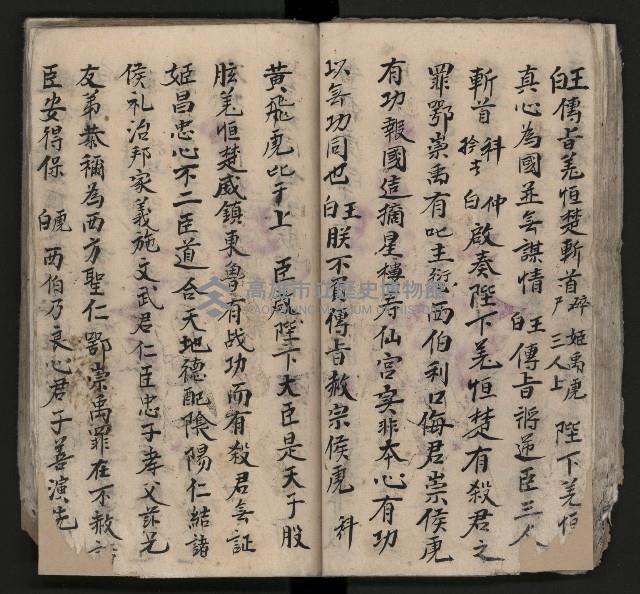 王白 傳旨羌恒楚斬首碎尸 姬禹虎三人上 陛下羌恒
真心為國並無謀情 王白 傳旨將逆臣三人
斬首 科 仲白 啟奏陛下羌恒楚有殺君之
罪鄂崇禹有叱主 西伯利口侮君崇侯虎
有功報國造摘星樓 仙宮实非本心有功
以無功同也 王白 朕不 傳旨赦崇侯虎 科
黃飛虎比于上 臣 陛下大臣是天子股
肱羌恒楚威鎮東魯有战功而有殺君無証
姬昌忠心不二臣道合天地德配陰陽仁結諸
侯礼治邦家義施文武君仁臣忠子孝父 兄
友弟恭禰為西方聖仁鄂崇禹罪在不赦
臣安得保 虎白 西伯乃良心君子善演先
高雄市立歷史博物館
KAOHSIUNG MUSEUM OF HISTORY